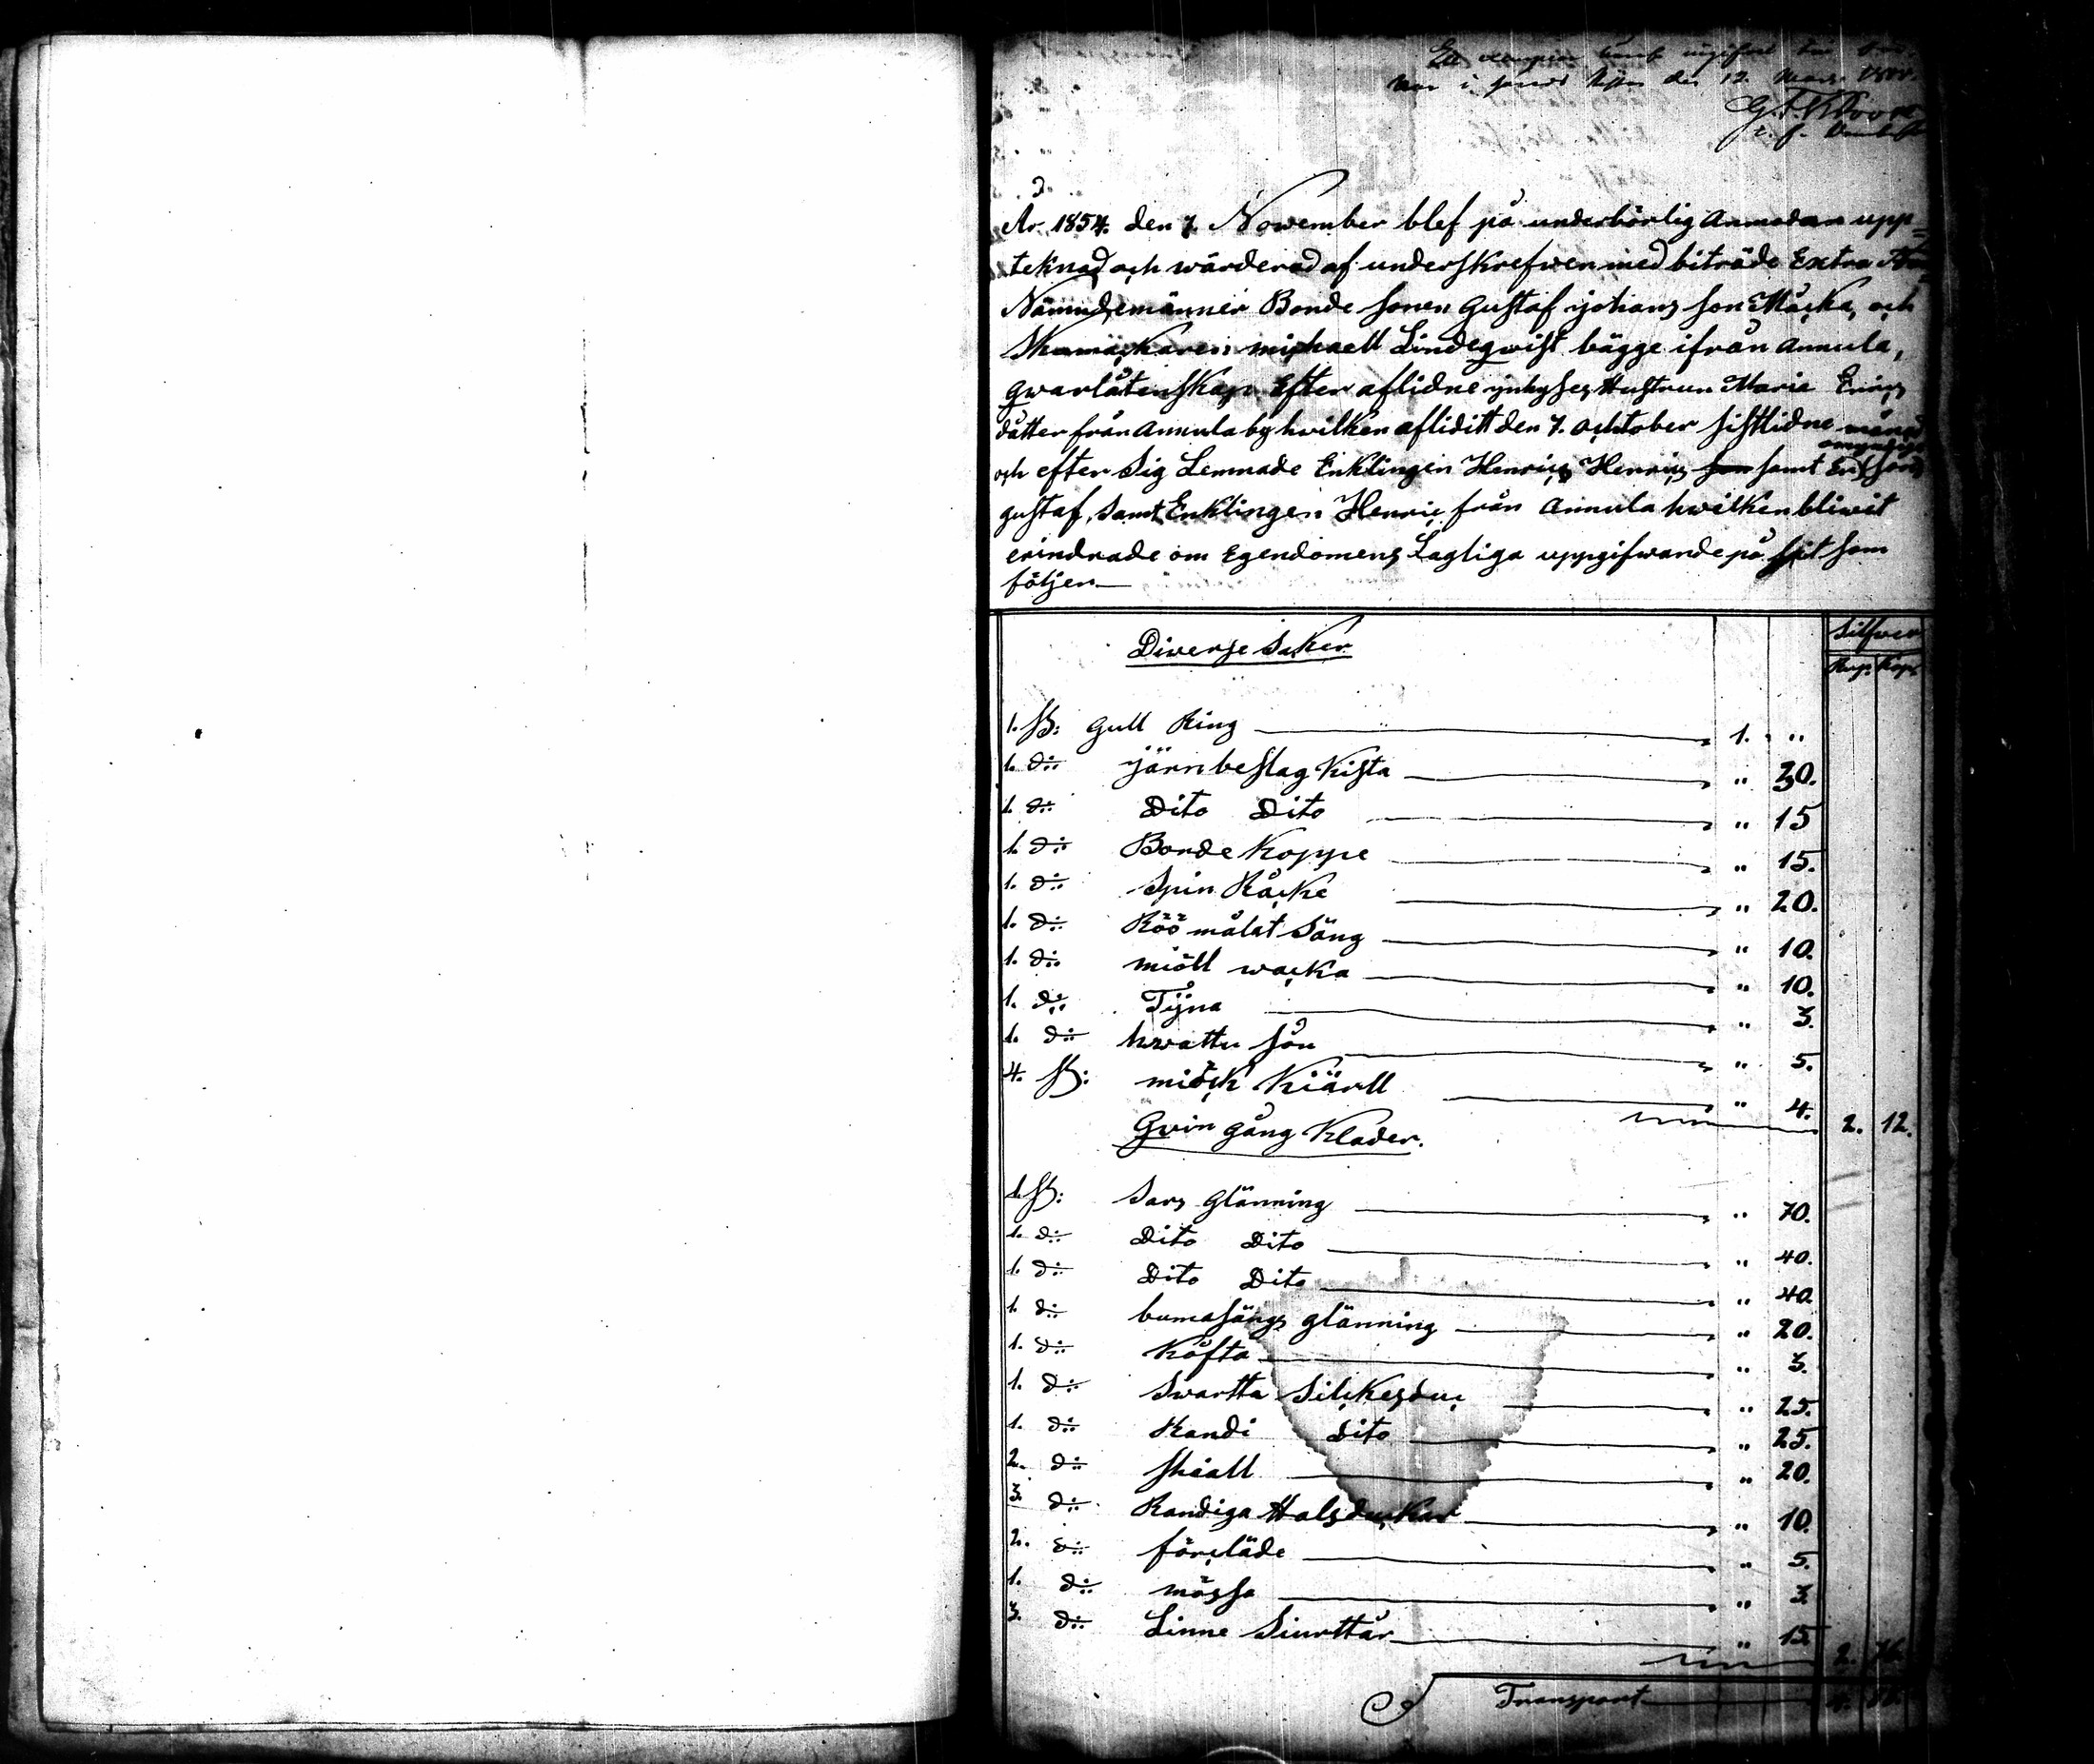 G. F. Kroon
År 1854. den 7. November blef på underbörlig anmodan upp=
teknad och wärderad af underskrefwen med biträde Extra
Nämndemänner Bonde sonen Gustaf johans son Mäcka, och
Skomackaren michaell Lindeqwist bägge ifrån annula,
qwarlåtenskap Efter aflidne ynhyses Hustrun Maria Erics
dåtter från Annula by hwilken aflidit den 7. ochtober sistlidne månad
och efter sig Lemnade Enklingen Henrics Henrics son samt En omyndige son
gustaf, samt Enklingen Henric från Annula hwilken bliwit
erindrade om Egendomens Lagliga uppgifwande på sät som
följer—
Silfwer
Diverse Saker
Rup. Kop.
1. st: gull Ring 1. "
1. d:o järnbeslag Kista " 30.
1. d:o Dito Dito " 15
1. d:o Borde Koppe " 15.
1. d:o Spin Råcke " 20.
1. d:o Röö målat Säng " 10.
1. d:o miöll wacka " 10.
1. d:o Tijna " 3.
1. d:o hwattu Såu " 5.
4. st: miöck Kiärll " 4. 2. 12.
Qvin gång Kläder.
1. st: Sars glänning " 70.
1. d:o Dito Dito " 40.
1. d:o Dito Dito " 40.
1. d:o bumasängs glänning " 20.
1. d:o Köfta " 3.
1. d:o Swartta Silckesduc " 25.
1. d:o Randi dito " 25.
2. d:o skiall " 20.
3. d:o Randiga Halsduckar " 10.
2. d:o förcläde " 5.
1. d:o mössa " 3.
3. d:o Linne Siurttar " 15. 2. 76.
Transport 4. 88.